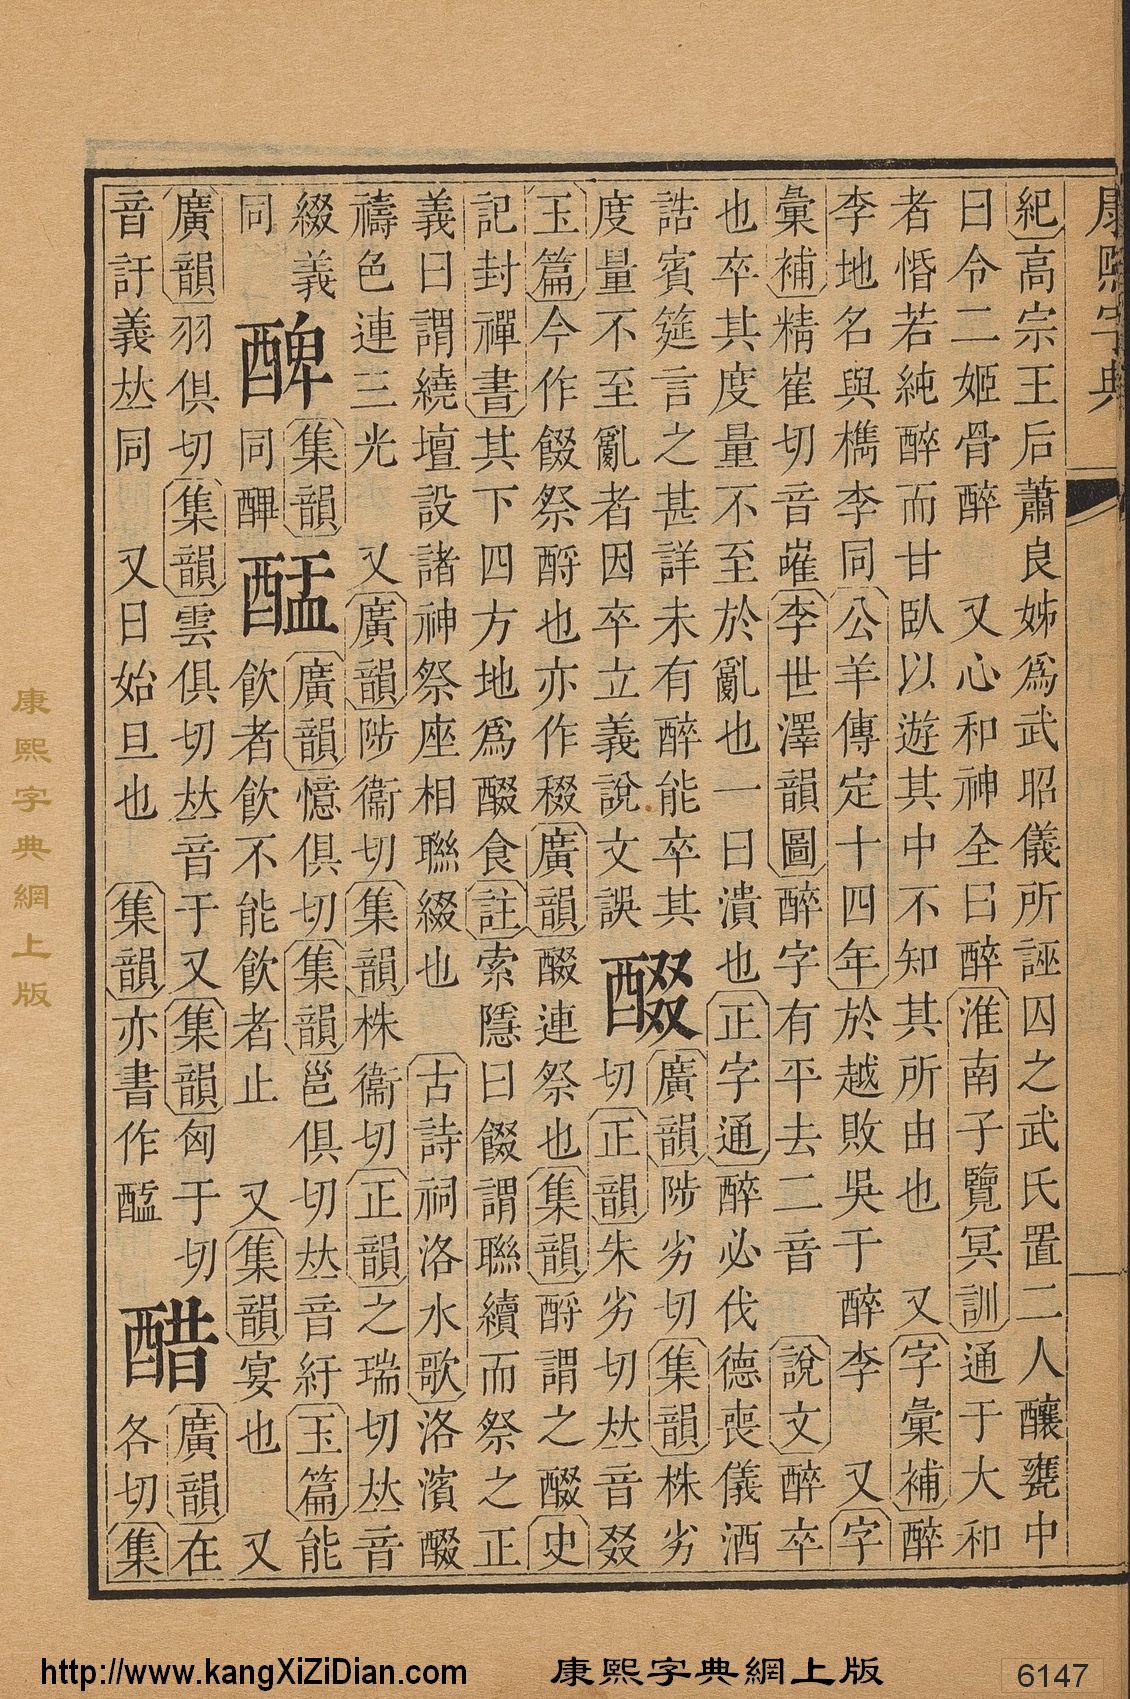 康熙字典
紀高宗王后蕭良姊爲武昭儀所誣囚之武氏置二人釀甕中
曰令二姬骨醉 又心和神全曰醉淮南子覽冥訓通于大和
者惛若純醉而甘臥以遊其中不知其所由也 又字彙補醉
李地名與檇李同公羊傳定十四年於越敗吳于醉李 又字
彙補精崔切音嶉李世澤韻圖醉字有平去二音 說文醉卒
也卒其度量不至於亂也一曰潰也正字通醉必伐德喪儀酒
誥賓筵言之甚詳未有醉能卒其
度量不至亂者因卒立義說文誤
醊
廣韻陟劣切集韻株劣
切正韻朱劣切𠀤音叕
玉篇今作餟祭酹也亦作廣韻醊連祭也集韻酹謂之醊史
記封禪書其下四方地爲醊食註索隱曰餟謂聯續而祭之正
義曰謂繞壇設諸神祭座相聯綴也 古詩祠洛水歌洛濱醊
禱色連三光 又廣韻陟衞切集韻株衞切正韻之瑞切𠀤音
綴義
同
集韻
同
廣韻憶俱切集韻邕俱切𠀤音紆玉篇能
飲者飲不能飲者止 又集韻宴也 又
廣韻羽俱切集韻雲俱切𠀤音于又集韻匈于切
音訏義𠀤同 又日始旦也 集韻亦書作
醋
廣韻在
各切集
康熙字典網上版
http://www.kangXiZiDian.com 康熙字典網上版 6147